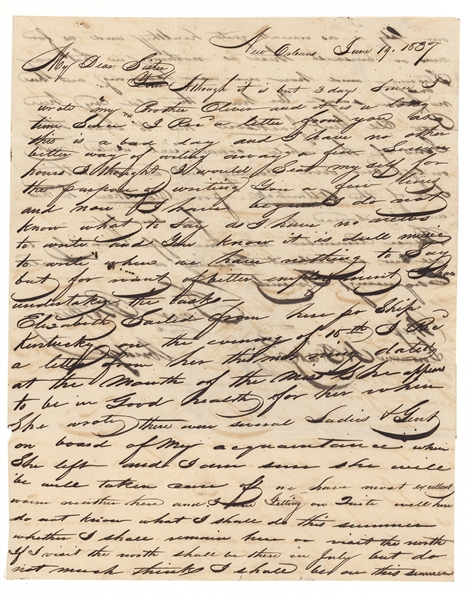 New Orleans June 19. 1837
My Dear Sister
Although it is but 3 days since I
wrote my Brother Oliver and it is a long
time since I Recd a letter from you as
this is a bad day and I have no other
better way of wiling away a few
hours I thought I would seat my self for
the purpose of writing you a few lines
and now I have I do not
know what to say as I have no news
to write and you know it is dull music
to write when we have nothing to say
but for want of better employment I have
undertaken the task—
Elizabeth Sailed from here pr Ship
Kentucky on the evening of 15th I Recd
a letter from her this morning dated
at the Mouth of the Miss She appears
to be in Good health for her when
She wrote there were several Ladies & Gent
on board of my acquaintance when
She left and I am sure she will
be well taken care of we have most excellent
warm weather here and I am Getting on Quite well here
do not know what I shall do this summer
whether I shall remain here or visit the north
If I visit the north shall be there in July but do
not much think I shall be on this summer